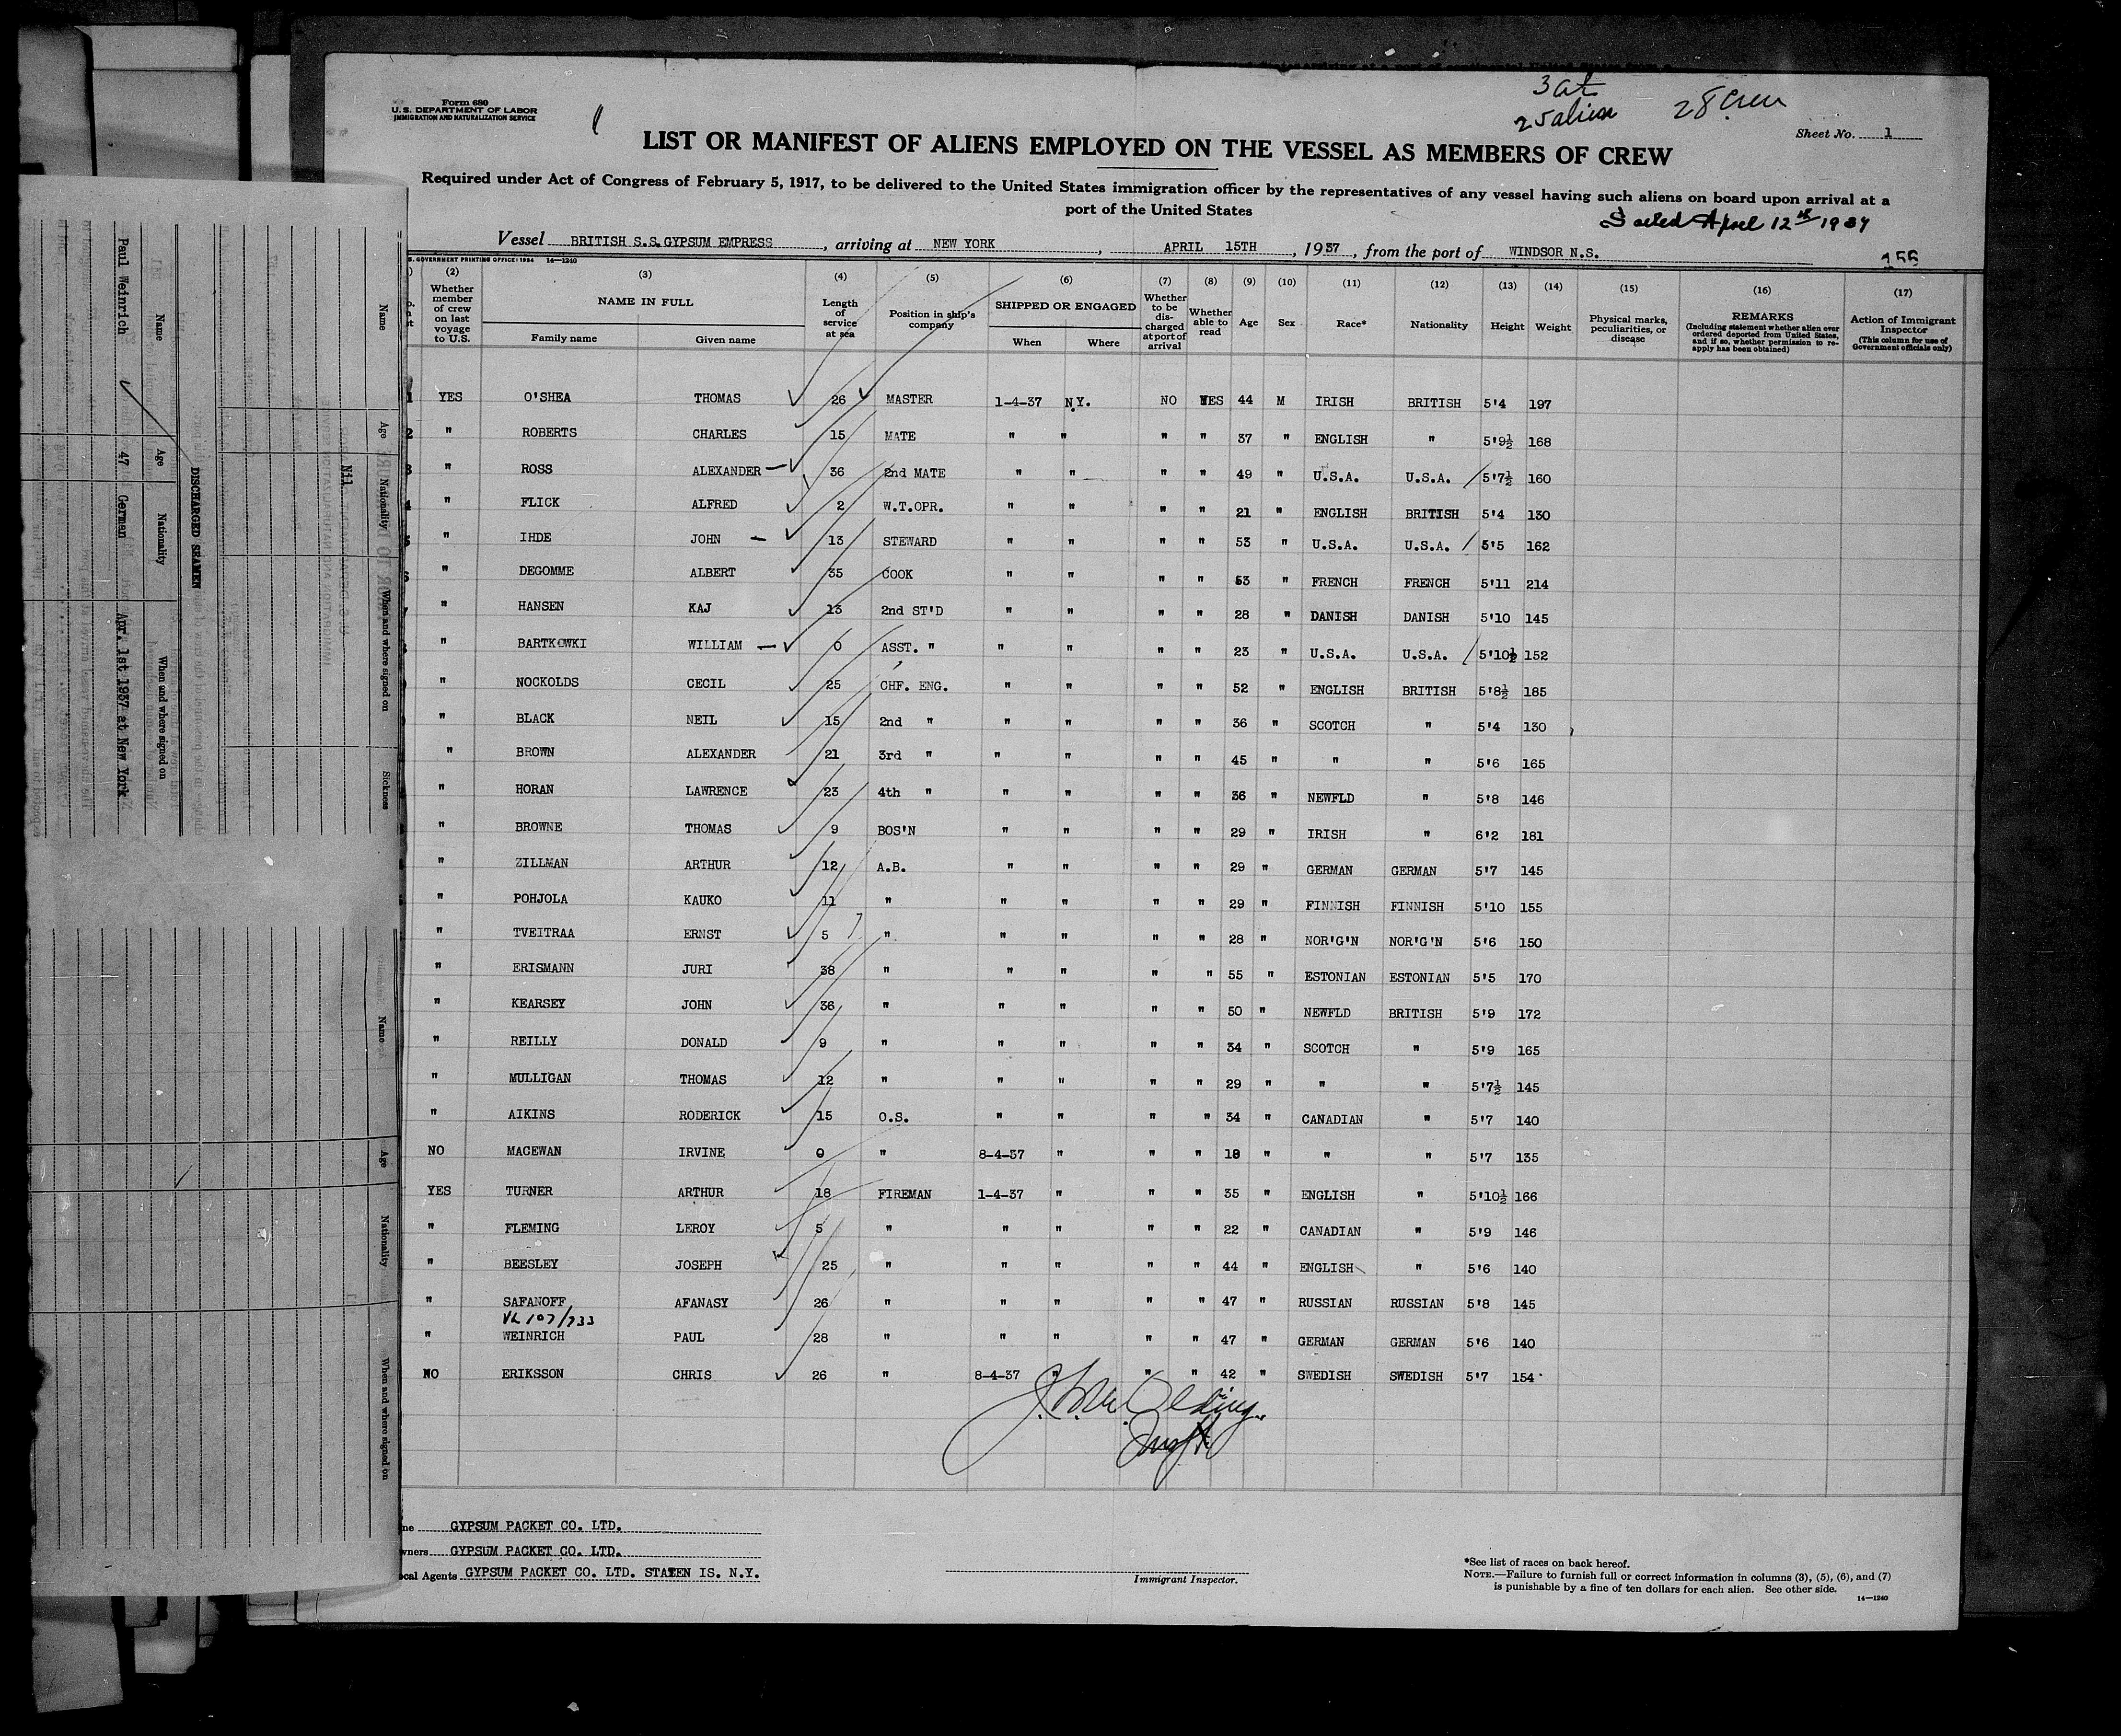 Form 680
U.S. DEPARTMENT OF LABOR
IMMIGRATION AND NATURALIZATION SERVICE
28 Crew
Sheet No. 1
LIST OR MANIFEST OF ALIENS EMPLOYED ON THE VESSEL AS MEMBERS OF CREW
Required under Act of Congress of February 5, 1917, to be delivered to the United States immigration officer by the representatives of any vessel having such aliens on board upon arrival at a
port of the United States
Sailed April 12th 1937
Vessel BRITISH S.S. GYPSUM EMPRESS, arriving at NEW YORK, APRIL 15TH, 1937, from the port of WINDSOR N.S.
156
GOVERNMENT PRINTING OFFICE: 1934 14—1240
(2) (3) (4) (5) (6) (7) (8) (9) (10) (11) (12) (13) (14) (15) (16) (17)
Whether member of crew on last voyage to U.S. NAME IN FULL Family name Given name Length of service at sea Position in ship's company SHIPPED OR ENGAGED When Where Whether to be discharged at port of arrival Whether able to read Age Sex Race* Nationality Height Weight Physical marks, peculiarities, or disease REMARKS (Including statement whether alien ever ordered deported from United States, and if so, whether permission to reapply has been obtained) Action of Immigrant Inspector (This column for use of Government officials only)
1 YES O'SHEA THOMAS 26 MASTER 1-4-37 N.Y. NO YES 44 M IRISH BRITISH 5'4 197
2 " ROBERTS CHARLES 15 MATE " " " " 37 " ENGLISH " 5'9½ 168
3 " ROSS ALEXANDER 36 2nd MATE " " " " 49 " U.S.A. U.S.A. 5'7½ 160
" FLICK ALFRED 2 W.T.OPR. " " " " 21 " ENGLISH BRITISH 5'4 130
" IHDE JOHN 13 STEWARD " " " " 53 " U.S.A. U.S.A. 5'5 162
" DEGOMME ALBERT 35 COOK " " " " 53 " FRENCH FRENCH 5'11 214
" HANSEN KAJ 13 2nd ST'D " " " " 28 " DANISH DANISH 5'10 145
" BARTKOWKI WILLIAM 0 ASST. " " " " " 23 " U.S.A. U.S.A. 5'10½ 152
" NOCKOLDS CECIL 25 CHF. ENG. " " " " 52 " ENGLISH BRITISH 5'8½ 185
" BLACK NEIL 15 2nd " " " " " 36 " SCOTCH " 5'4 130
" BROWN ALEXANDER 21 3rd " " " " " 45 " " " 5'6 165
" HORAN LAWRENCE 23 4th " " " " " 36 " NEWFLD " 5'8 146
" BROWNE THOMAS 9 BOS'N " " " " 29 " IRISH " 6'2 181
" ZILLMAN ARTHUR 12 A.B. " " " " 29 " GERMAN GERMAN 5'7 145
" POHJOLA KAUKO 11 " " " " " 29 " FINNISH FINNISH 5'10 155
" TVEITRAA ERNST 5 " " " " " 28 " NOR'G'N NOR'G'N 5'6 150
" ERISMANN JURI 38 " " " " " 55 " ESTONIAN ESTONIAN 5'5 170
" KEARSEY JOHN 36 " " " " " 50 " NEWFLD BRITISH 5'9 172
" REILLY DONALD 9 " " " " " 34 " SCOTCH " 5'9 165
" MULLIGAN THOMAS 12 " " " " " 29 " " " 5'7½ 145
" AIKINS RODERICK 15 O.S. " " " " 34 " CANADIAN " 5'7 140
NO MACEWAN IRVINE 0 " 8-4-37 " " " 18 " " " 5'7 135
YES TURNER ARTHUR 18 FIREMAN 1-4-37 " " " 35 " ENGLISH " 5'10½ 166
" FLEMING LEROY 5 " " " " " 22 " CANADIAN " 5'9 146
" BEESLEY JOSEPH 25 " " " " " 44 " ENGLISH " 5'6 140
" SAFANOFF AFANASY 26 " " " " " 47 " RUSSIAN RUSSIAN 5'8 145
" WEINRICH PAUL 28 " " " " " 47 " GERMAN GERMAN 5'6 140
NO ERIKSSON CHRIS 26 " 8-4-37 " " " 42 " SWEDISH SWEDISH 5'7 154
GYPSUM PACKET CO. LTD.
GYPSUM PACKET CO. LTD.
Agents GYPSUM PACKET CO. LTD. STATEN IS. N.Y.
Immigrant Inspector.
*See list of races on back hereof.
NOTE.—Failure to furnish full or correct information in columns (3), (5), (6), and (7)
is punishable by a fine of ten dollars for each alien. See other side.
14—1240
Name Age Nationality When and where signed on Sickness
Nil
DISCHARGED SEAMEN
Name Age Nationality When and where signed on
Paul Weinrich 47 German Apr. 1st 1937 at New York
Name Age Nationality When and where signed on